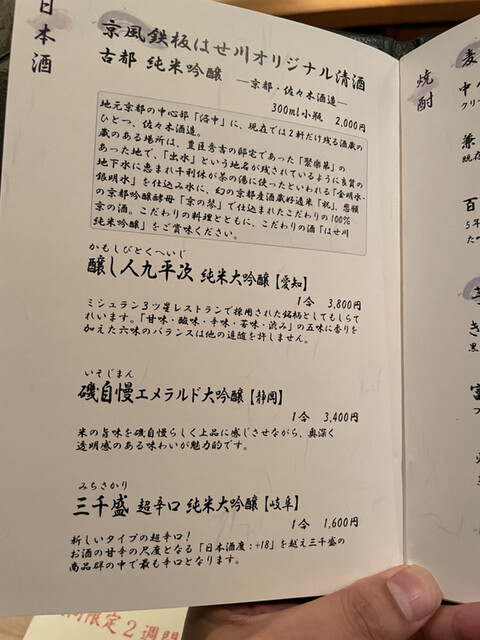 日本酒
京風鉄板はせ川オリジナル清酒
古都 純米吟醸 ―京都・佐々木酒造―
300ml小瓶 2,000円
地元京都の中心部「洛中」に、現在では2軒だけ残る酒蔵の
ひとつ、佐々木酒造。
蔵のある場所は、豊臣秀吉の邸宅であった「聚楽第」の
あった地で、「出水」という地名が残されているように良質の
地下水に恵まれ千利休が茶の湯に使ったといわれる「金明水・
銀明水」を仕込み水に、幻の京都産酒蔵好適米「祝」、悲願
の京都吟醸酵母「京の琴」で仕込まれたこだわりの100%
京の酒。こだわりの料理とともに、こだわりの酒「はせ川
純米吟醸」をご賞味ください。
かもしびとくへいじ
醸し人九平次 純米大吟醸【愛知】
1合 3,800円
ミシュラン3ツ星レストランで採用された銘柄としてもしら
れいます。「甘味・酸味・辛味・苦味・渋み」の五味に香りを
加えた六味のバランスは他の追随を許しません。
いそじまん
磯自慢エメラルド大吟醸【静岡】
1合 3,400円
米の旨味を磯自慢らしく上品に感じさせながら、奥深く
透明感のある味わいが魅力的です。
みちさかり
三千盛 超辛口 純米大吟醸【岐阜】
1合 1,600円
新しいタイプの超辛口!
お酒の甘辛の尺度となる「日本酒度:+18」を越え三千盛の
商品群の中で最も辛口となります。
間限定2週間
焼酎
麦
中
クリ
兼
現在
百
5年
た一
き
黒
富